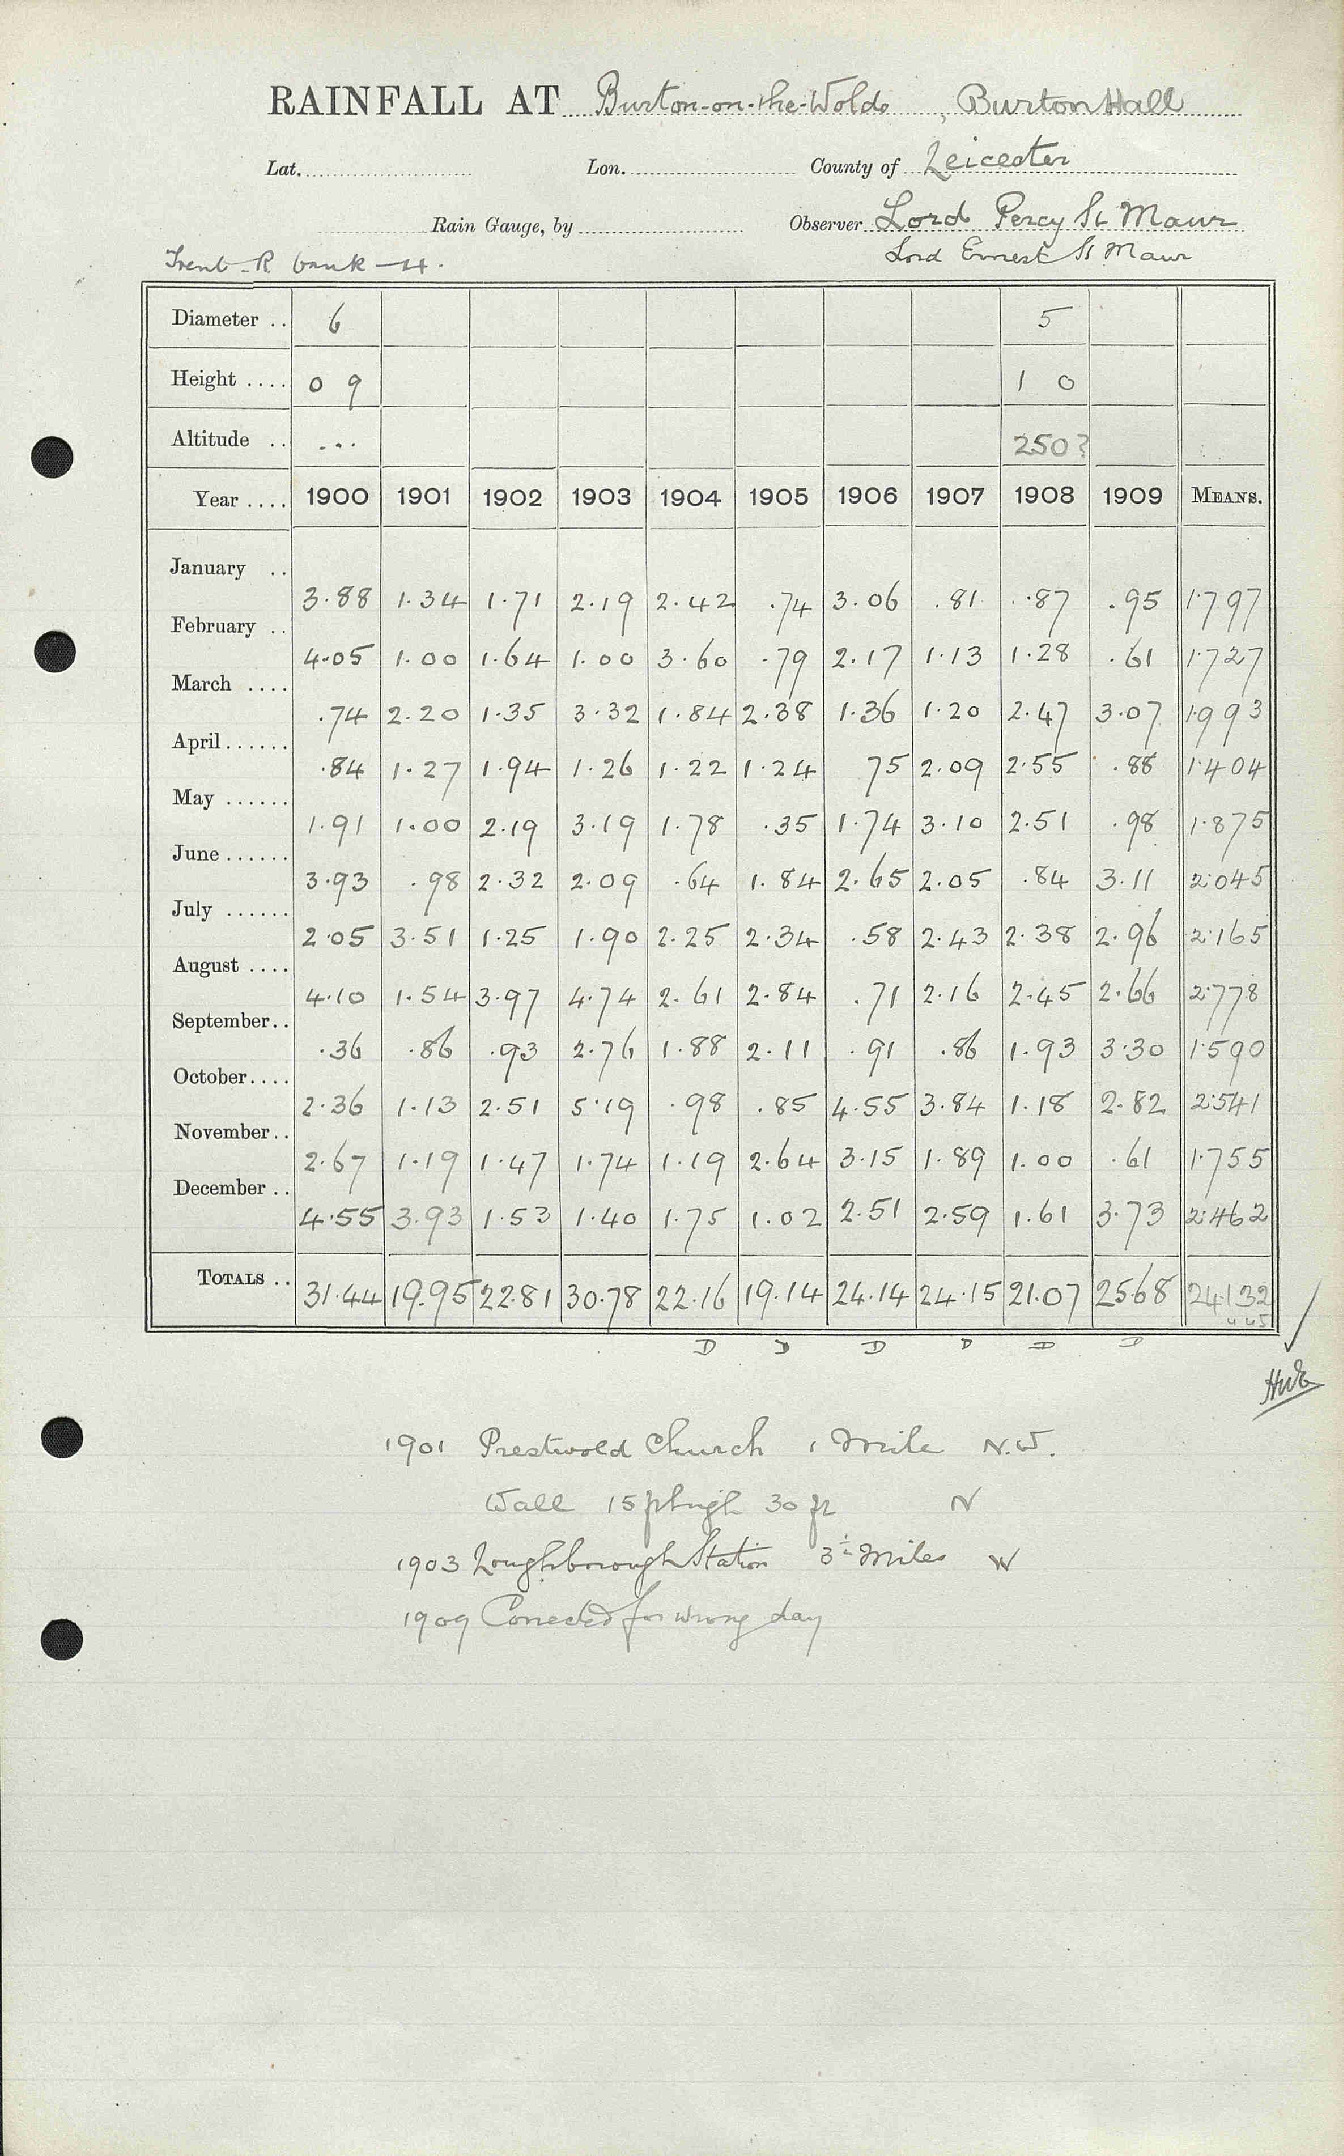 RAINFALL AT Burton-on-the-Wolds, Burton Hall
Lat. Lon. County of Leicester
Rain Gauge, by Observer Lord Percy St Maur
Trent R bank Lord Ernest St Maur
Diameter .. 6 5
Height .... 0 9 1 0
Altitude .. ... 250?
Year .... 1900 1901 1902 1903 1904 1905 1906 1907 1908 1909 MEANS.
January .. 3.88 1.34 1.71 2.19 2.42 .74 3.06 .81 .87 .95 1.797
February .. 4.05 1.00 1.64 1.00 3.60 .79 2.17 1.13 1.28 .61 1.727
March .... .74 2.20 1.35 3.32 1.84 2.38 1.36 1.20 2.47 3.07 1.993
April...... .84 1.27 1.94 1.26 1.22 1.24 75 2.09 2.55 .88 1.404
May ...... 1.91 1.00 2.19 3.19 1.78 .35 1.74 3.10 2.51 .98 1.875
June...... 3.93 .98 2.32 2.09 .64 1.84 2.65 2.05 .84 3.11 2.045
July ...... 2.05 3.51 1.25 1.90 2.25 2.34 .58 2.43 2.38 2.96 2.165
August .... 4.10 1.54 3.97 4.74 2.61 2.84 .71 2.16 2.45 2.66 2.778
September.. .36 .86 .93 2.76 1.88 2.11 .91 .86 1.93 3.30 1.590
October.... 2.36 1.13 2.51 5.19 .98 .85 4.55 3.84 1.18 2.82 2.541
November.. 2.67 1.19 1.47 1.74 1.19 2.64 3.15 1.89 1.00 .61 1.755
December .. 4.55 3.93 1.53 1.40 1.75 1.02 2.51 2.59 1.61 3.73 2.462
TOTALS .. 31.44 19.95 22.81 30.78 22.16 19.14 24.14 24.15 21.07 25.68 24.132
D D D D D D
1901 Prestwold Church 1 Mile N.W.
Wall 15 ft high 30 ft N
1903 Loughborough Station 3½ Miles W
1909 Corrected for wrong day